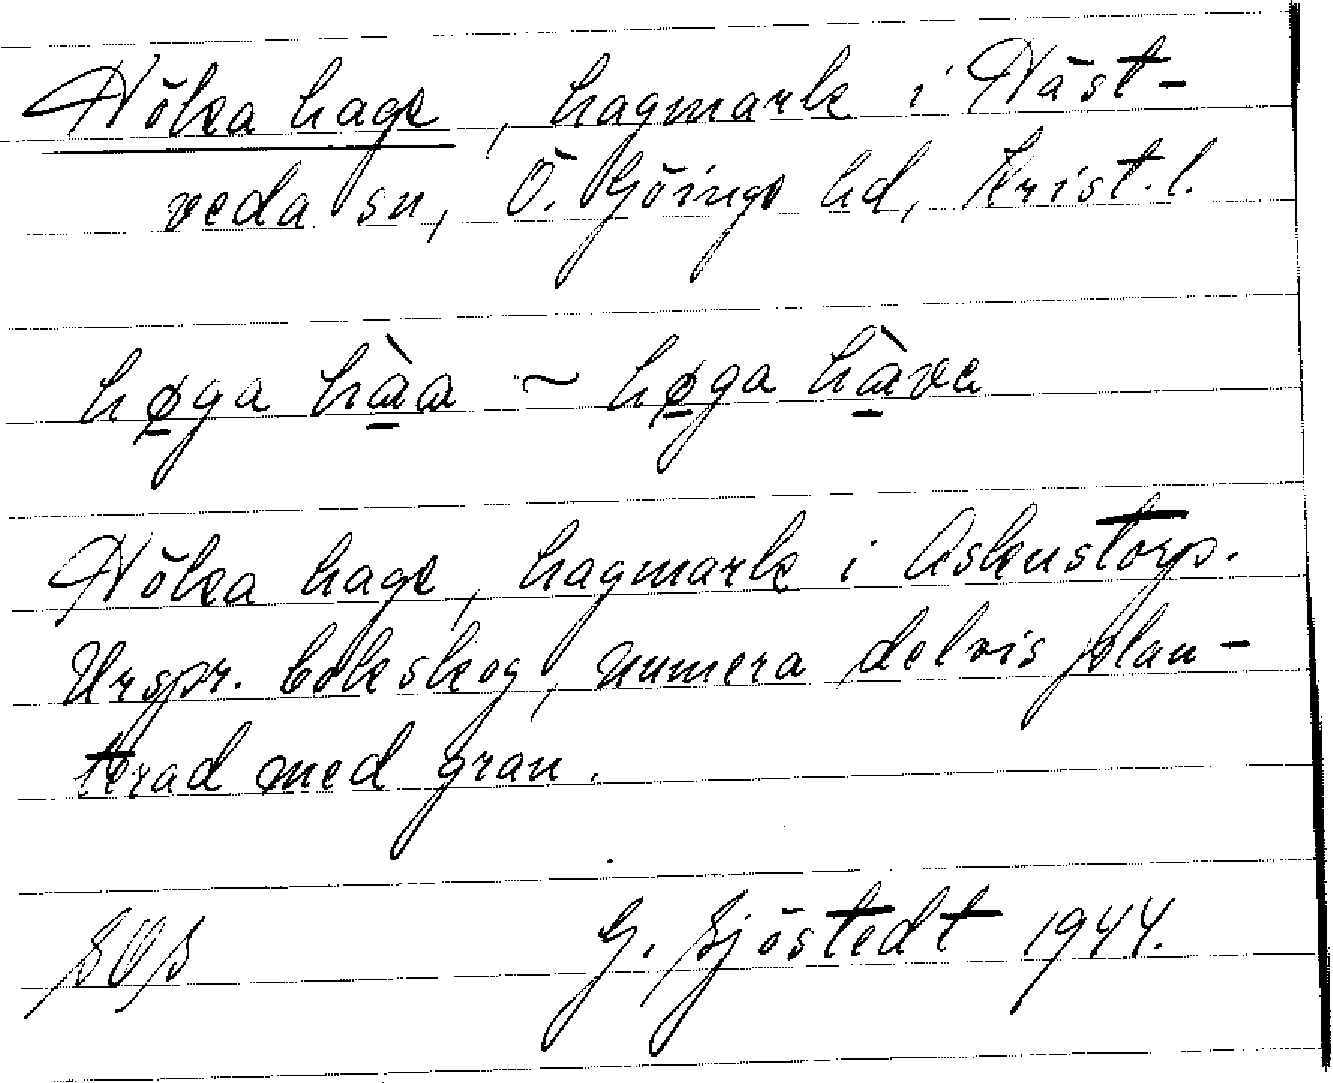 Höka hage, hagmark i Häst-
veda sn, Ö. Göinge hd, Krist. l.
hø̱ga hà̱a ~ hø̱ga hà̱va
Höka hage, hagmark i Askenstorp.
Urspr. bokskog, numera delvis plan-
terad med gran.
SOS G. Sjöstedt 1944.